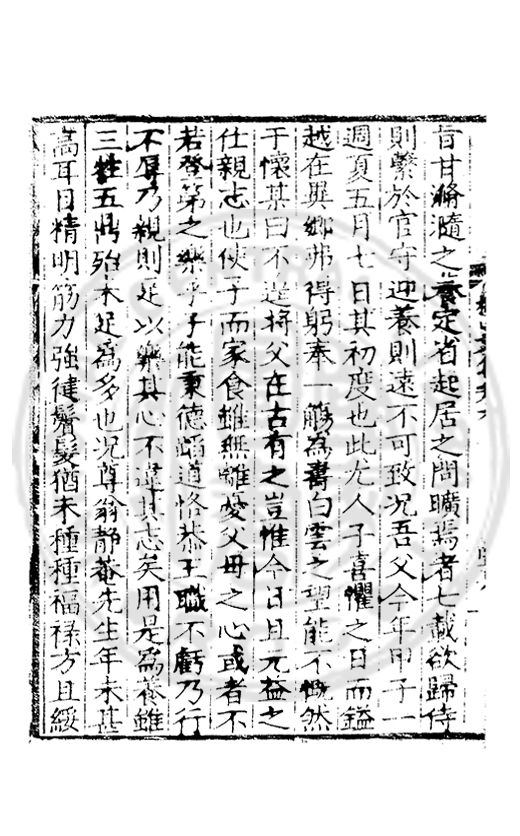 旨甘滫瀡之養定省起居之間曠焉者七載欲歸侍
則繫於官守迎養則遠不可致况吾父今年甲子一
週夏五月七日其初度也此尤人子喜懼之日而鎰
越在異鄉弗得躬奉一觴為壽白雲之望能不慨然
于懷某曰不遑將父在古有之豈惟今日且元益之
仕親志也使子而家食雖無離憂父母之心或者不
若登第之樂乎子能秉德蹈道恪恭王職不虧乃行
不辱乃親則足以樂其心不違其志矣用是為養雖
三牲五鼎殆未足為多也况尊翁靜菴先生年未甚
高耳目精明筋力強健鬢髮猶未種種福祿方且綏